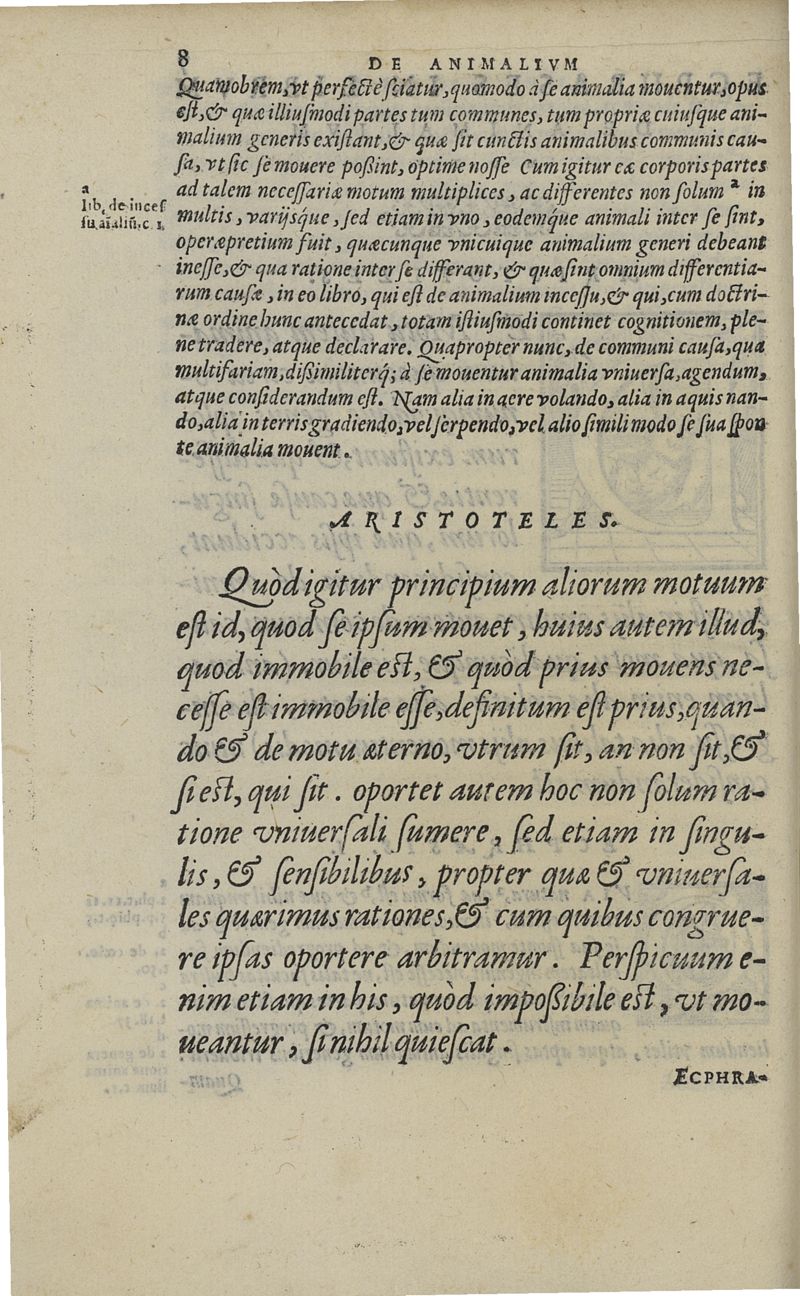 8 DE ANIMALIVM
Quamobrem, vt perfectè sciatur, quomodo à se animalia mouentur, opus
est, & quæ illiusmodi partes tum communes, tum propriæ cuiusque ani-
malium generis existant, & quæ sit cunctis animalibus communis cau-
sa, vt sic se mouere poßint, optime nosse Cum igitur eæ corporis partes
ad talem necessariæ motum multiplices, ac differentes non solum ª in
multis, varijsque, sed etiam in vno, eodemq́ue animali inter se sint,
operæpretium fuit, quæcunque vnicuique animalium generi debeant
inesse, & qua ratione inter se differant, & quæ sint omnium differentia-
rum causæ, in eo libro, qui est de animalium incessu, & qui, cum doctri-
næ ordine hunc antecedat, totam istiusmodi continet cognitionem, ple-
ne tradere, atque declarare. Quapropter nunc, de communi causa, qua
multifariam, dißimiliterq́; à se mouentur animalia vniuersa, agendum,
atque considerandum est. Nam alia in aere volando, alia in aquis nan-
do, alia in terris gradiendo, vel serpendo, vel alio simili modo se sua spon
te animalia mouent.
a
lib. de inces
su aīaliū, c. 1,
ARISTOTELES.
Quòd igitur principium aliorum motuum
est id, quod se ipsum mouet, huius autem illud,
quod immobile est, & quòd prius mouens ne-
cesse est immobile esse, definitum est prius, quan-
do & de motu æterno, vtrum sit, an non sit, &
si est, qui sit. oportet autem hoc non solum ra-
tione vniuersali sumere, sed etiam in singu-
lis, & sensibilibus, propter quæ & vniuersa-
les quærimus rationes, & cum quibus congrue-
re ipsas oportere arbitramur. Perspicuum e-
nim etiam in his, quòd impoßibile est, vt mo-
ueantur, si nihil quiescat.
ECPHRA-